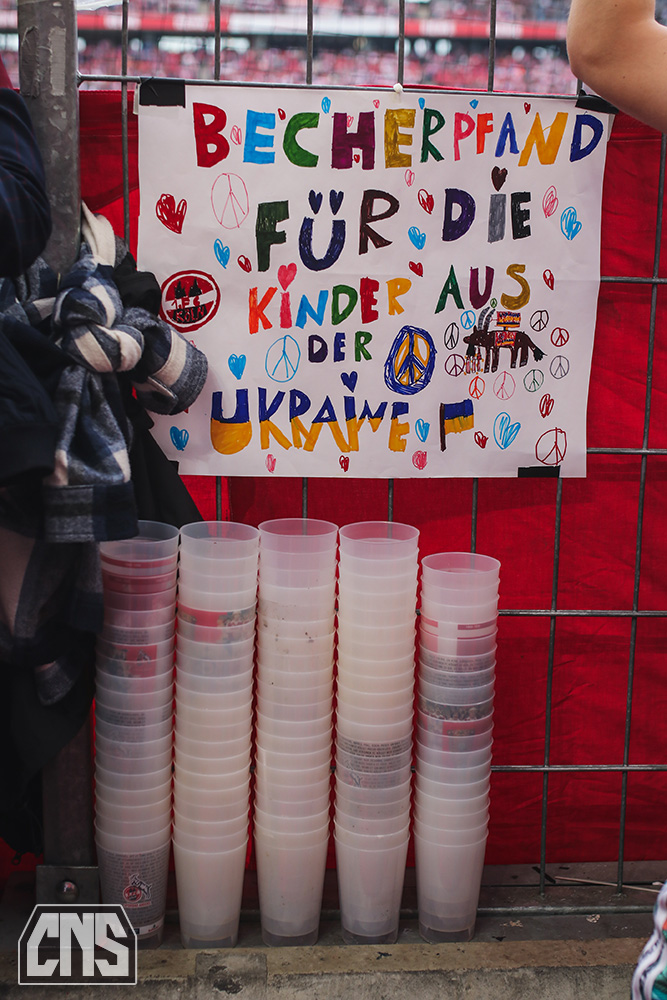 BECHERPFAND
FÜR DIE
KINDER AUS
DER
UKRAINE
1.FC
KÖLN
CNS